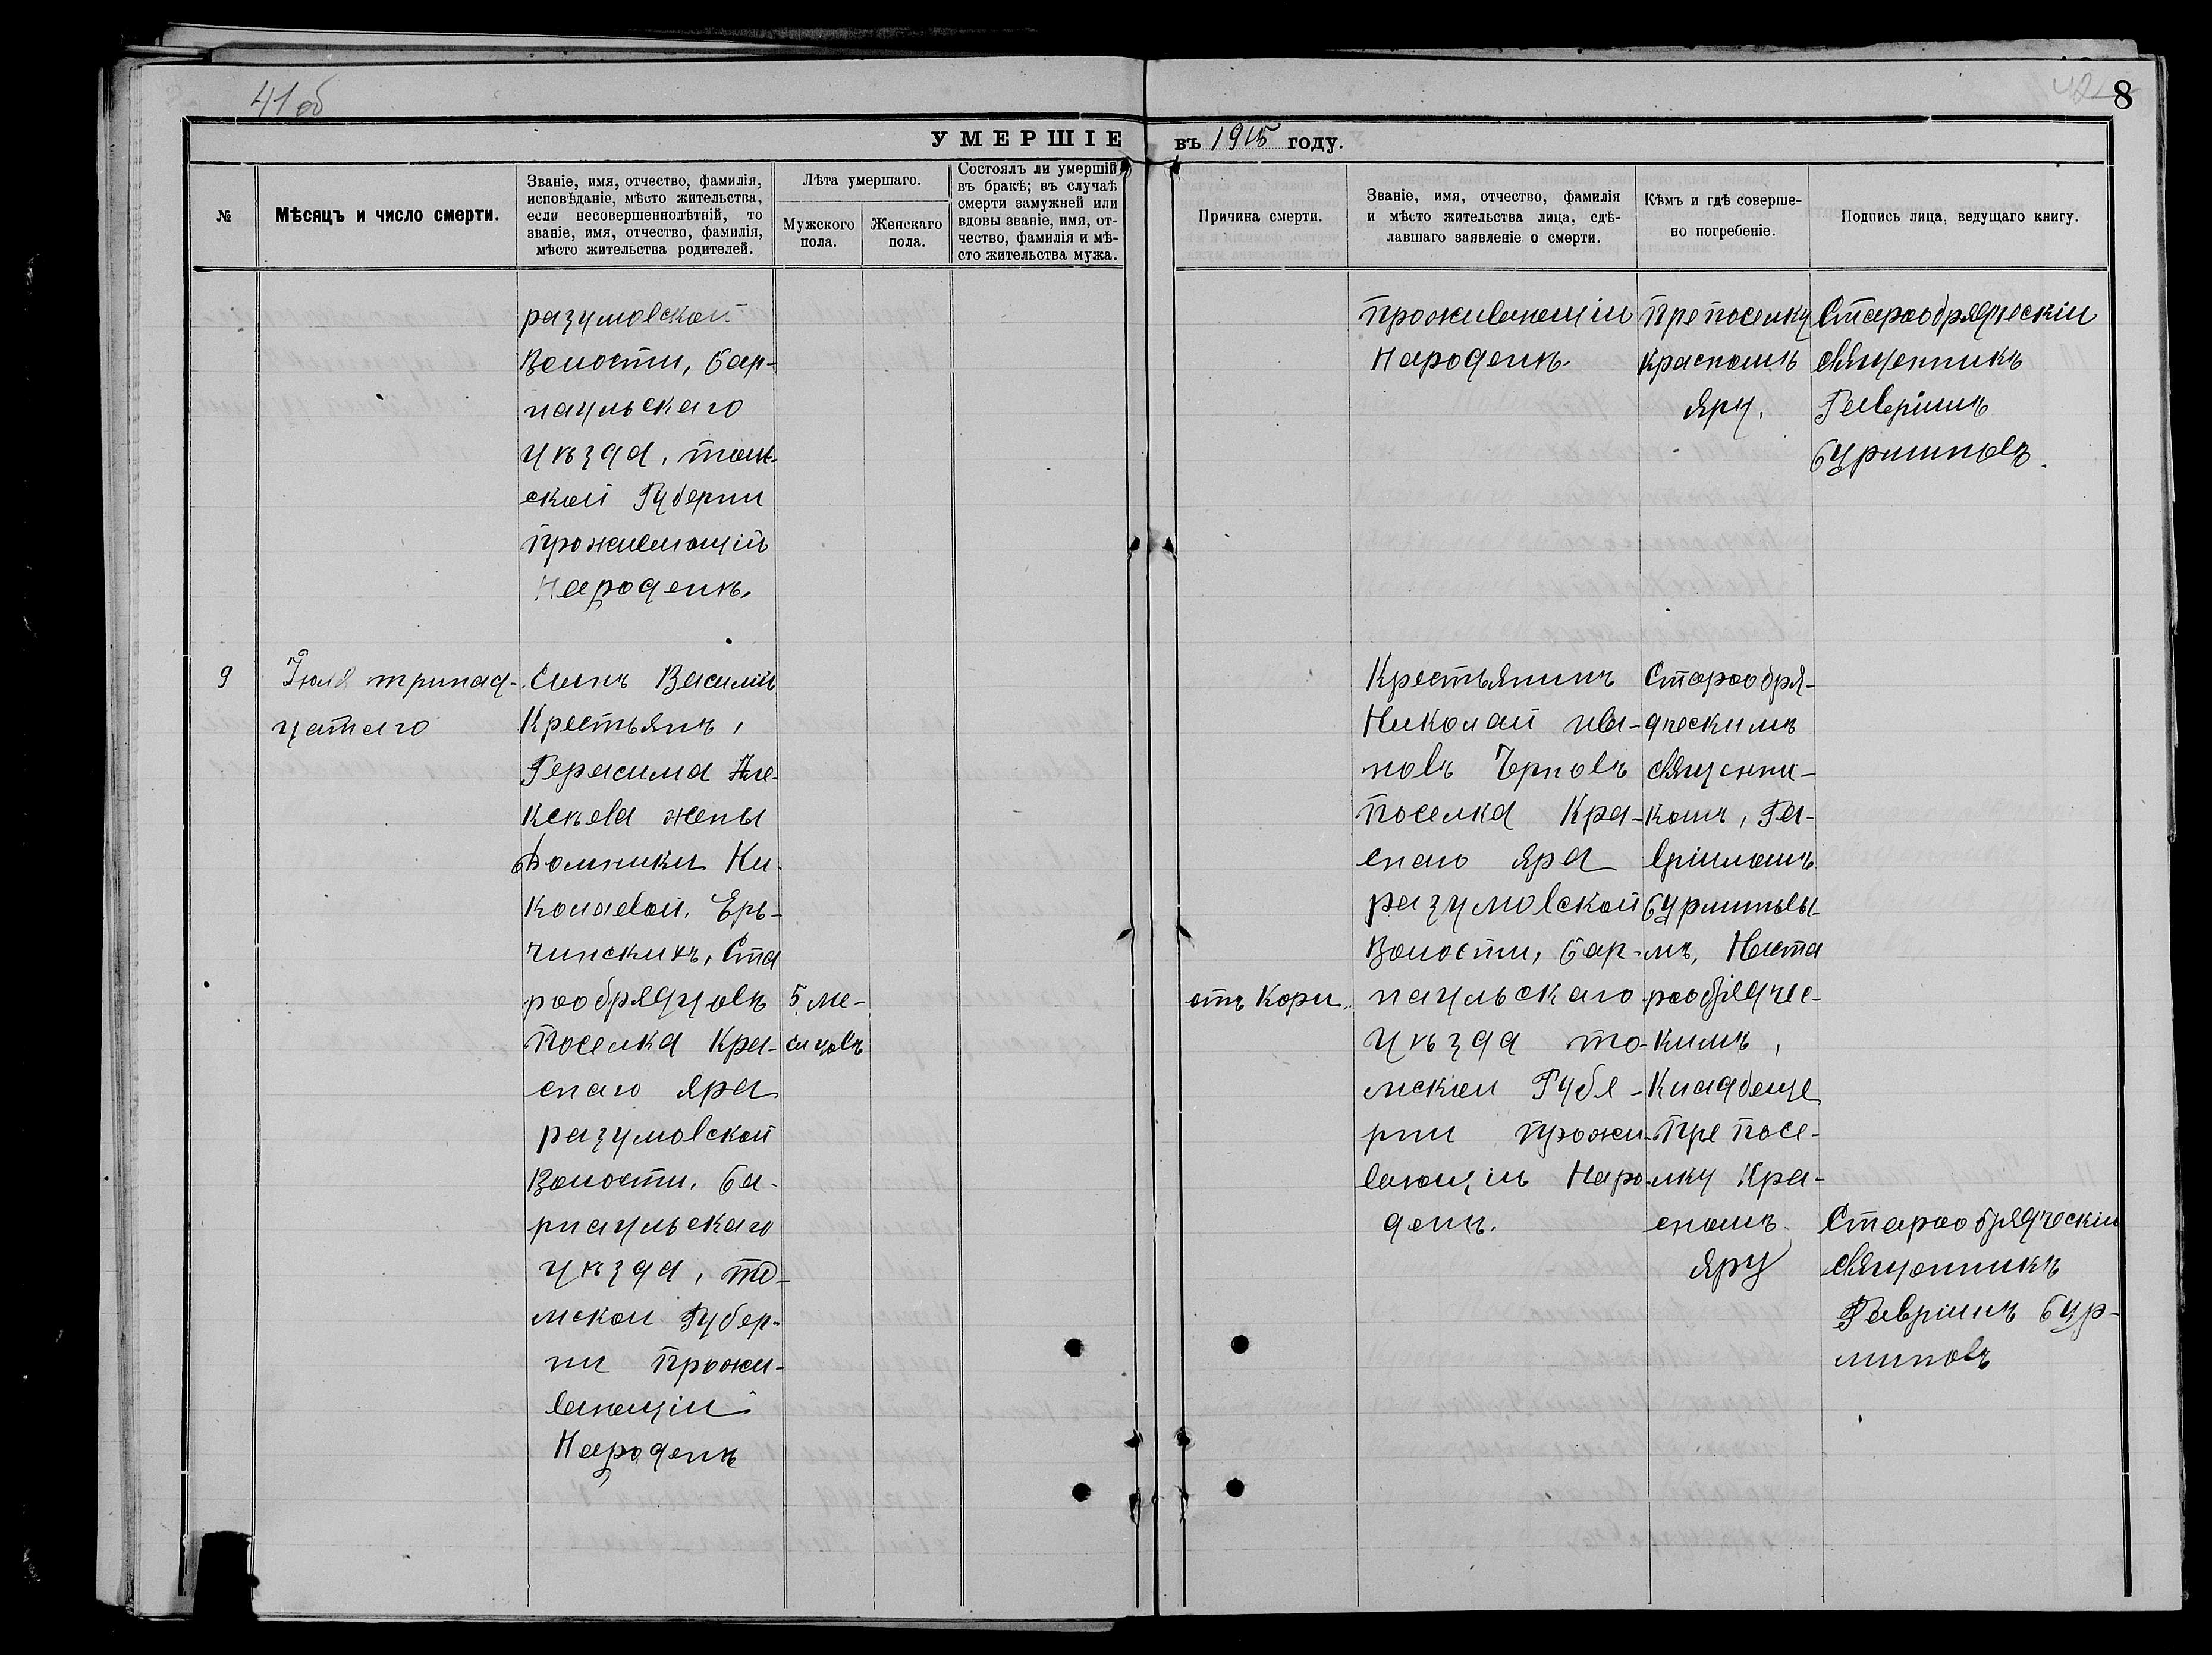 41 об
42
8
УМЕРШІЕ въ 1915 году.
№
Мѣсяцъ и число смерти.
Званіе, имя, отчество, фамилія,
исповѣданіе, мѣсто жительства,
если несовершеннолѣтній, то
званіе, имя, отчество, фамилія,
мѣсто жительства родителей.
Лѣта умершаго.
Мужского
пола.
Женскаго
пола.
Состоялъ ли умершій
въ бракѣ; въ случаѣ
смерти замужней или
вдовы званіе, имя, от-
чество, фамилія и мѣ-
сто жительства мужа.
Причина смерти.
Званіе, имя, отчество, фамилія
и мѣсто жительства лица, сдѣ-
лавшаго заявленіе о смерти.
Кѣмъ и гдѣ соверше-
но погребеніе.
Подпись лица, ведущаго книгу.
разумовской
Волости, бар-
наульскаго
уѣзда, том-
ской Губерни
Проживающій
Народенъ.
Проживающій
Народенъ.
Пре поселку
Красномъ
Яру.
Старообрядческій
священникъ
Гавріилъ
бурминовъ.
9
Іюля тринад-
цатаго
Сынъ Василій
Крестьянъ,
Герасима Але-
ксѣева жены
Домники Ни-
колаевой, Ерь-
чинскихъ, Ста
рообрядцовъ
Поселка Кра-
снаго Яра
разумовской
Волости, ба-
рнаульскаго
уѣзда, то-
мской Губер-
ни Прожи-
вающій
Народенъ
5, ме-
сицовъ
отъ Кори.
Крестьянинъ
Николай ива-
новъ Черновъ
Поселка Кра-
снаго Яра
разумовской
Волости, бар-
наульскаго
уѣзда то-
мской Губе-
рни Прожи-
вающій Наро-
денъ.
Старообря-
дческимъ
священни-
комъ, Га-
вріиломъ
бурминовы-
мъ, На ста
рообрядчес-
кимъ,
Кладбеще
Пре посе-
лку Кра-
сномъ
Яру
Старообрядческій
священникъ
Гавріилъ бур-
миновъ